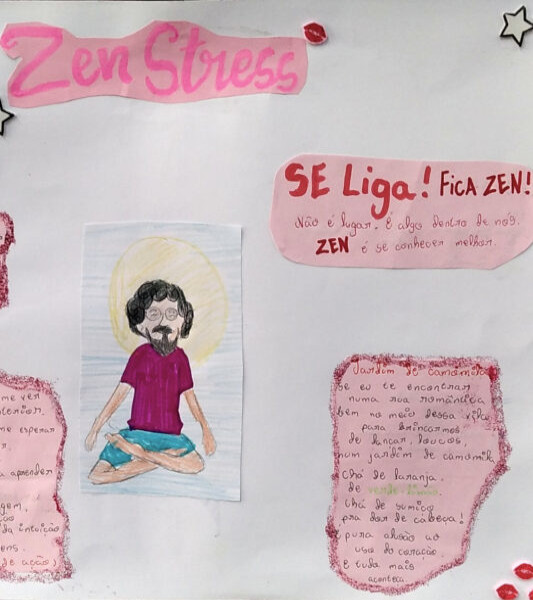 Zen Stress
SE Liga! FICA ZEN!
Não é lugar. É algo dentro de nós.
ZEN é se conhecer melhor.
me ver
interior.
me esperar
r.
a aprender
agem,
ção
da intuição
ens.
de ação)
Jardim de camomila
se eu te encontrar
numa rua romântica
bem no meio dessa vila
para brincarmos
de dançar, loucos,
num jardim de camomil
Chá de laranja,
de verde-limão.
Chá de sumiço
pra dor de cabeça!
pura alusão ao
uso do coração.
E tudo mais
aconteça